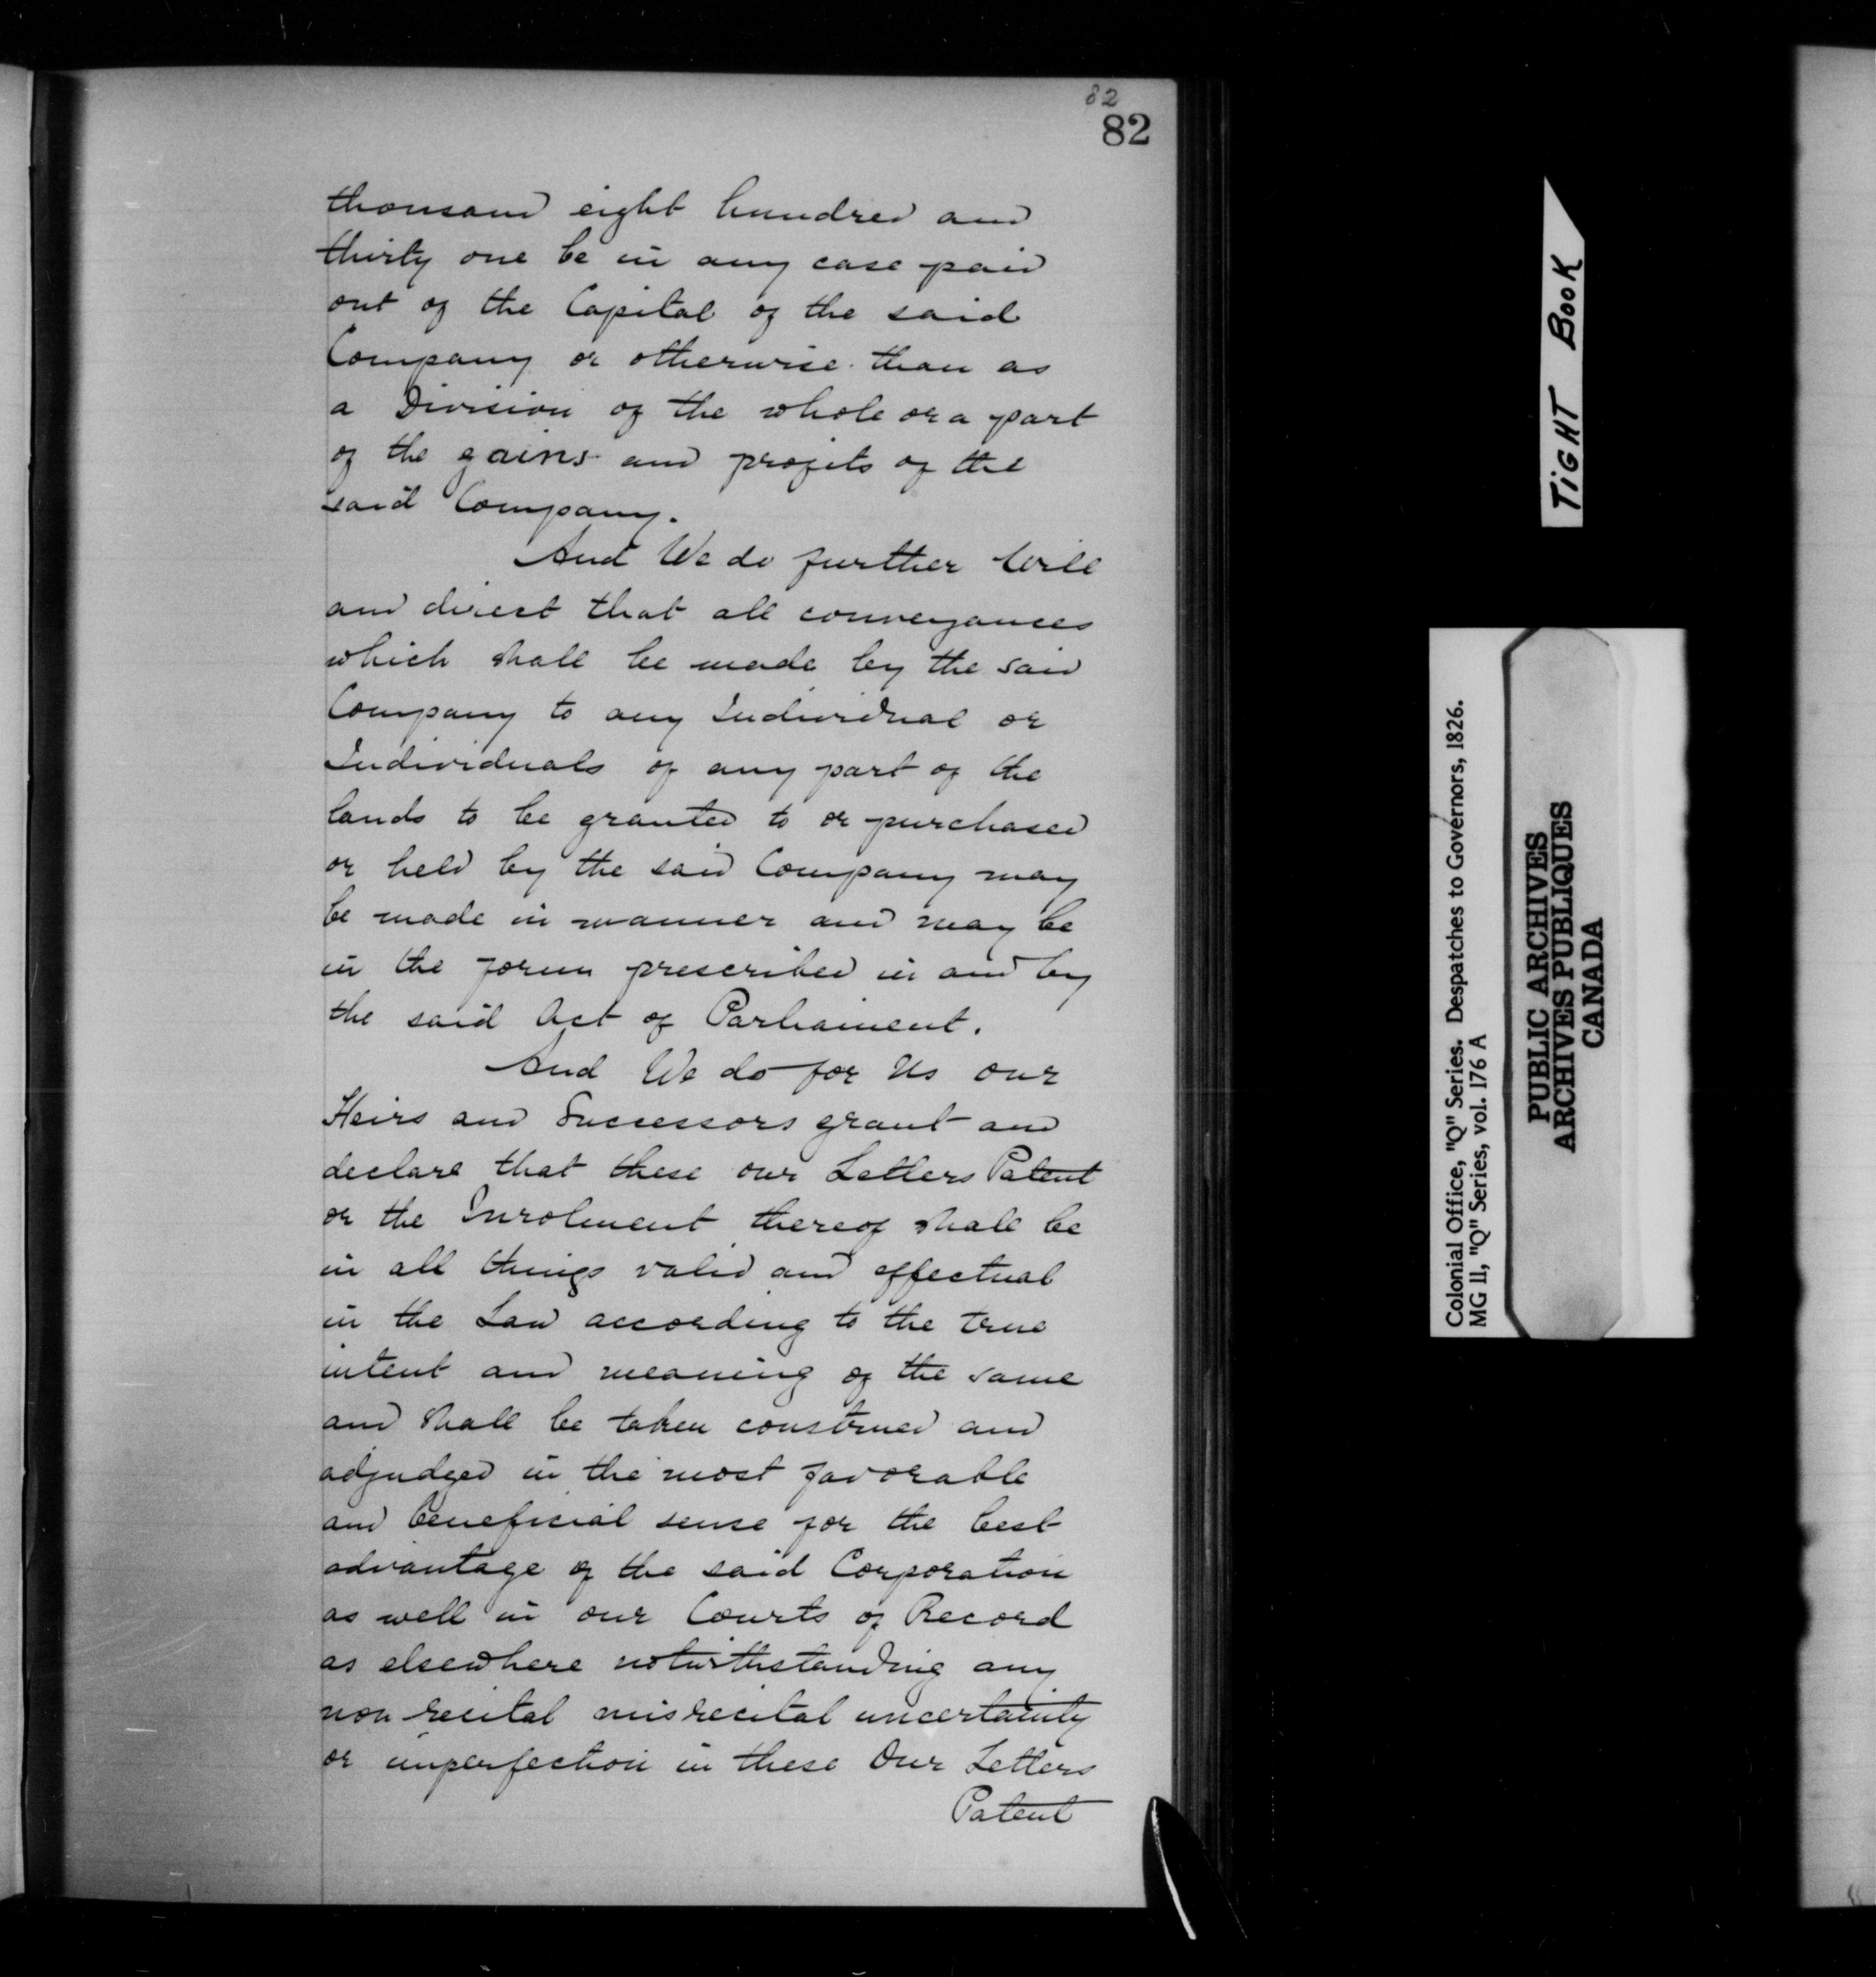 82
82
thousand eight hundred and
thirty one be in any case paid
out of the Capital of the said
Company or otherwise than as
a Division of the whole or a part
of the gains and profits of the
said Company.
And We do further Will
and direct that all conveyances
which shall be made by the said
Company to any Individual or
Individuals of any part of the
lands to be granted to or purchased
or held by the said Company may
be made in manner and may be
in the form prescribed in and by
the said Act of Parliament.
And We do for Us our
Heirs and Successors grant and
declare that these our Letters Patent
or the Inrolment thereof shall be
in all things valid and effectual
in the Law according to the true
intent and meaning of the same
and shall be taken construed and
adjudged in the most favorable
and beneficial sense for the best
advantage of the said Corporation
as well in our Courts of Record
as elsewhere notwithstanding any
non-recital misrecital uncertainty
or imperfection in these Our Letters
Patent
TiGHT BOOK
Colonial Office, "Q" Series. Despatches to Governors, 1826.
MG 11, "Q" Series, vol. 176 A
PUBLIC ARCHIVES
ARCHIVES PUBLIQUES
CANADA